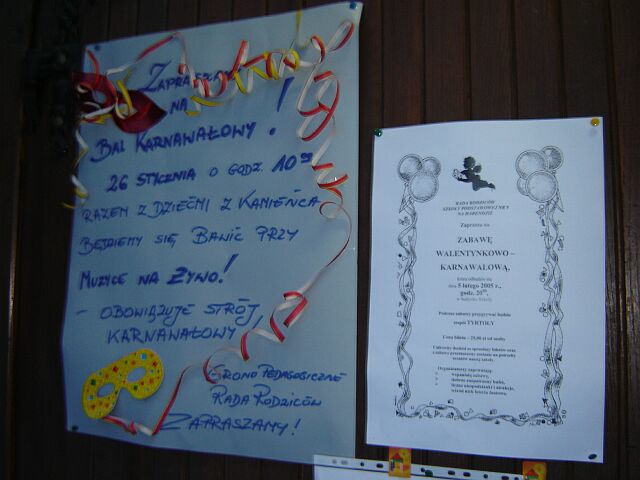 ZAPRASZAMY
NA
BAL KARNAWAŁOWY !
26 STYCZNIA O GODZ. 10 00
RAZEM Z DZIEĆMI Z KAMIEŃCA
BĘDZIEMY SIĘ BAWIĆ PRZY
MUZYCE NA ŻYWO!
- OBOWIĄZUJE STRÓJ
KARNAWAŁOWY
GRONO PEDAGOGICZNE
RADA RODZICÓW
ZAPRASZAMY!
RADA RODZICÓW
SZKOŁY PODSTAWOWEJ NR 5
NA HARENDZIE
Zaprasza na
ZABAWĘ
WALENTYNKOWO –
KARNAWAŁOWĄ,
która odbędzie się
dnia 5 lutego 2005 r.,
godz. 20 00
w budynku Szkoły
Podczas zabawy przygrywać będzie
zespół TYRTOŁY
Cena biletu – 25,00 zł od osoby
Całkowity dochód ze sprzedaży biletów oraz
z zabawy przeznaczony zostanie na potrzeby
uczniów naszej szkoły.
Organizatorzy zapewniają:
wspaniałą zabawę,
dobrze zaopatrzony bufet,
liczne niespodzianki i atrakcje,